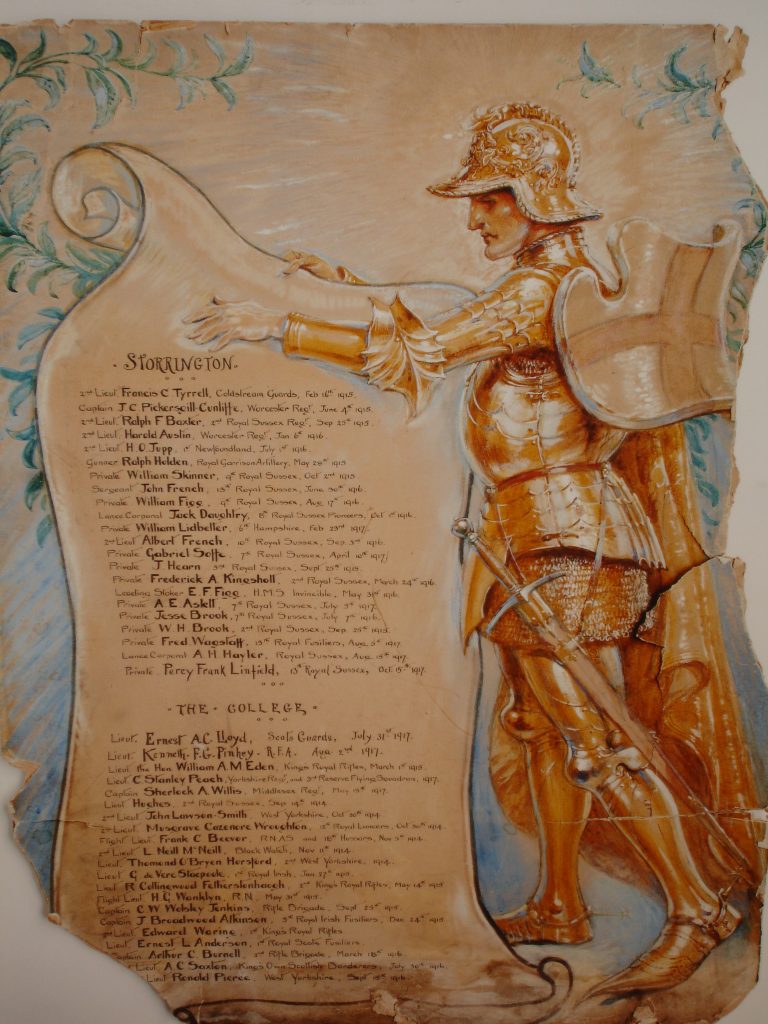 · STORRINGTON ·
2nd Lieut. Francis C Tyrrell, Coldstream Guards, Feb 16th 1915.
Captain J.C. Pickersgill-Cunliffe, Worcester Regt, June 4th 1915.
2nd Lieut. Ralph F Baxter, 2nd Royal Sussex Regt, Sep 25th 1915.
2nd Lieut. Harold Austin, Worcester Regt, Jan 6th 1916.
2nd Lieut. H.O. Jupp, 1st Newfoundland, July 1st 1916.
Gunner Ralph Holden, Royal Garrison Artillery, May 28th 1915
Private William Skinner, 9th Royal Sussex, Oct 2nd 1915
Sergeant John French, 13th Royal Sussex, June 30th 1916.
Private William Figg, 9th Royal Sussex, Aug 17th 1916.
Lance Corporal Jack Daughtry, 8th Royal Sussex Pioneers, Oct 1916.
Private William Lidbetter, 6th Hampshire, Feb 23rd 1917.
2nd Lieut Albert French, 10th Royal Sussex, Sep 3rd 1916.
Private Gabriel Softe, 7th Royal Sussex, April 10th 1917.
Private J. Hearn 2nd Royal Sussex, Sept 25th 1915.
Private Frederick A Kingshott, 2nd Royal Sussex, March 24th 1916.
Leading Stoker E.F. Figg, H.M.S Invincible, May 31st 1916.
Private A.E. Astell, 7th Royal Sussex, July 3rd 1917.
Private Jesse Brook, 7th Royal Sussex, July 7th 1916.
Private W.H. Brook, 2nd Royal Sussex, Sep 25th 1915.
Private Fred Wagstaff, 13th Royal Fusiliers, Aug 5th 1917.
Lance Corporal A.H. Hayler, Royal Sussex, Aug 13th 1917.
Private. Percy Frank Linfield, 13th Royal Sussex, Oct 15th 1917.
· THE · COLLEGE ·
Lieut. Ernest A.C. Lloyd, Scots Guards, July 31st 1917.
Lieut. Kenneth. F.G. Pinkey. R.F.A. Aug 2nd 1917.
Lieut the Hon William A.M Eden, King's Royal Rifles, March 1st 1915.
Lieut C Stanley Peach, Yorkshire Regt, and 3rd Reserve Flying Squadron, 1917.
Captain Sherlock A. Willis, Middlesex Regt, May 15th 1917.
Lieut Hughes, 2nd Royal Sussex, Sep 14th 1914.
2nd Lieut. John Lawson-Smith, West Yorkshire, Oct 20th 1914.
2nd Lieut. Musgrave Cazenove Wroughton, 12th Royal Lancers, Oct 30th 1914.
Flight Lieut Frank C Beevor, R.N.A.S and 18th Hussars, Nov 5th 1914.
2nd Lieut L Neill McNeill, Black Watch, Nov 11th 1914.
Lieut. Thomond O'Bryen Horsford, 2nd West Yorkshire, 1914.
Lieut. G. de Vere Stacpoole, 1st Royal Irish, Jan 27th 1915.
Lieut R Collingwood Fetherstonhaugh, 2nd King's Royal Rifles, May 14th 1915
Flight Lieut H.G. Wanklyn, R.N., May 31st 1915.
Captain C.W. Wolsley Jenkins, Rifle Brigade, Sept 25th 1915.
Captain J. Broadwood Atkinson, 5th Royal Irish Fusiliers, Dec 24th 1915.
2nd Lieut Edward Waring, 1st King's Royal Rifles
Lieut. Ernest L Anderson, 1st Royal Scots Fusiliers.
Captain Arthur C. Burnell, 2nd Rifle Brigade, March 18th 1916.
Lieut A C Saxton, King's Own Scottish Borderers, July 30th 1916.
Lieut Ronald Pierce, West Yorkshire, Sept 15th 1916.